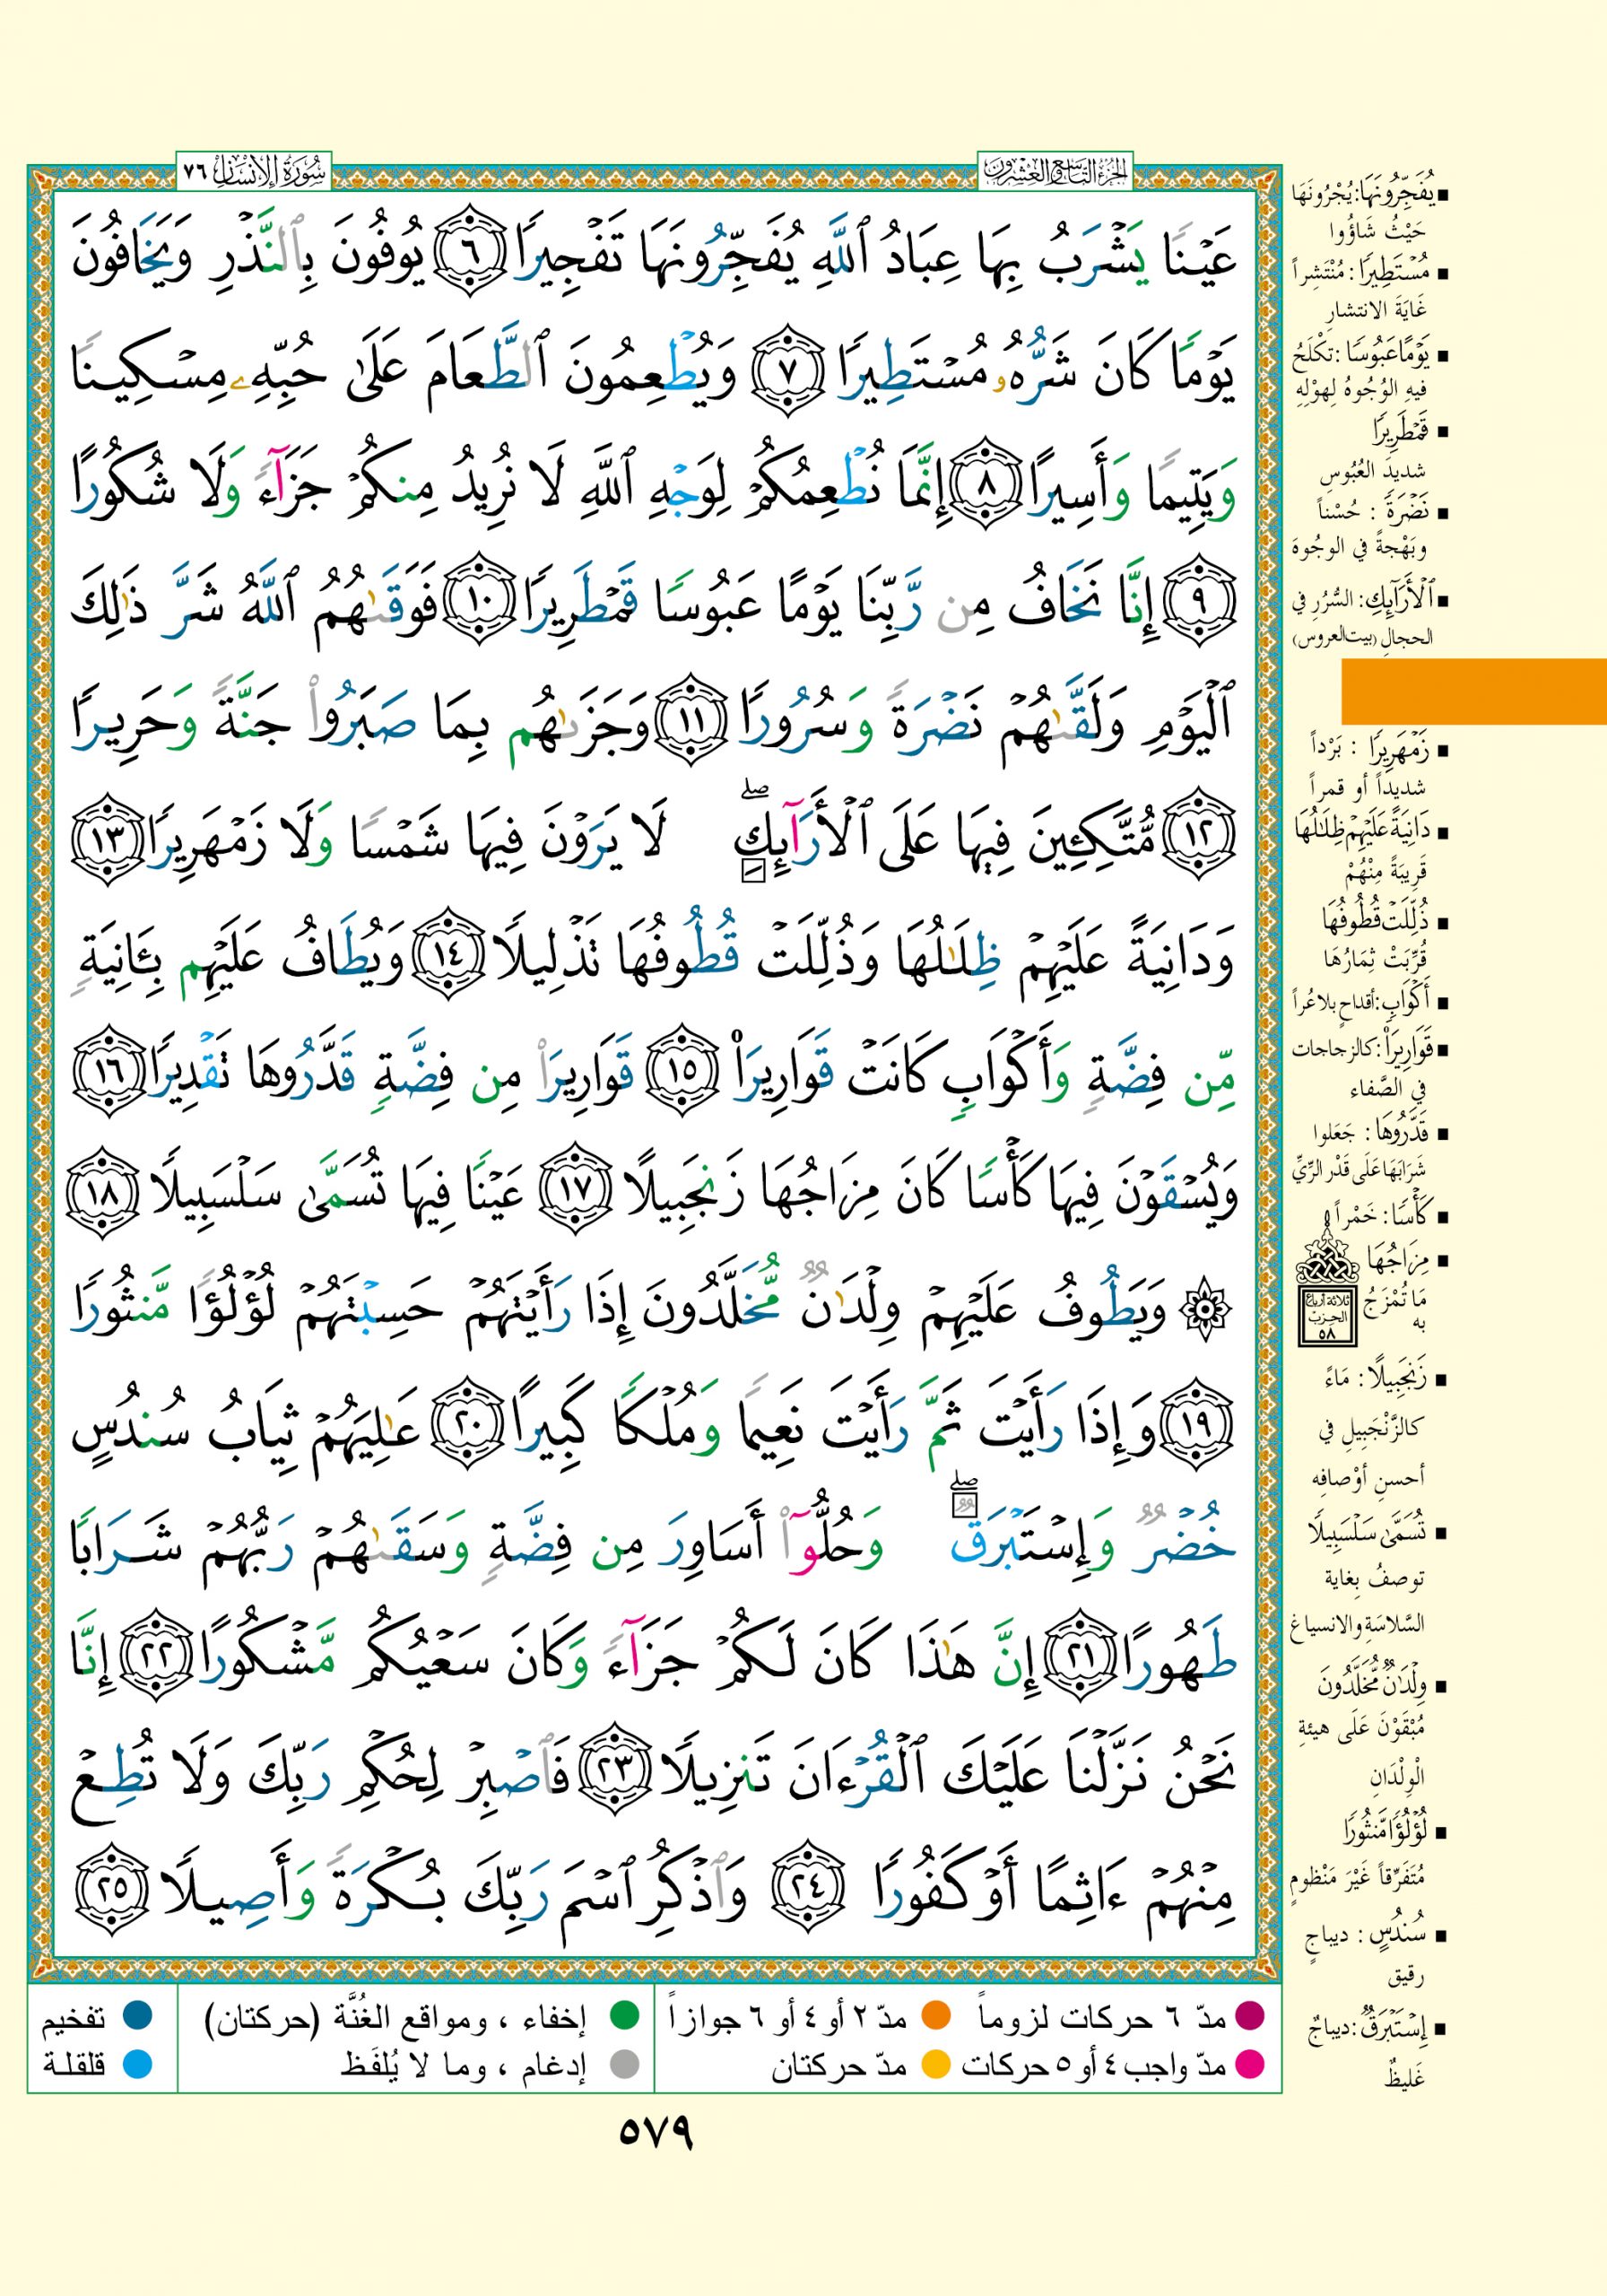 الجزء التاسع والعشرون
سُورَةُ الإِنسَان ٧٦
عَيْنًا يَشْرَبُ بِهَا عِبَادُ ٱللَّهِ يُفَجِّرُونَهَا تَفْجِيرًا ٦ يُوفُونَ بِٱلنَّذْرِ وَيَخَافُونَ
يَوْمًا كَانَ شَرُّهُۥ مُسْتَطِيرًا ٧ وَيُطْعِمُونَ ٱلطَّعَامَ عَلَىٰ حُبِّهِۦ مِسْكِينًا
وَيَتِيمًا وَأَسِيرًا ٨ إِنَّمَا نُطْعِمُكُمْ لِوَجْهِ ٱللَّهِ لَا نُرِيدُ مِنكُمْ جَزَآءً وَلَا شُكُورًا
٩ إِنَّا نَخَافُ مِن رَّبِّنَا يَوْمًا عَبُوسًا قَمْطَرِيرًا ١٠ فَوَقَىٰهُمُ ٱللَّهُ شَرَّ ذَٰلِكَ
ٱلْيَوْمِ وَلَقَّىٰهُمْ نَضْرَةً وَسُرُورًا ١١ وَجَزَىٰهُم بِمَا صَبَرُوا۟ جَنَّةً وَحَرِيرًا
١٢ مُّتَّكِـِٔينَ فِيهَا عَلَى ٱلْأَرَآئِكِ ۖ لَا يَرَوْنَ فِيهَا شَمْسًا وَلَا زَمْهَرِيرًا ١٣
وَدَانِيَةً عَلَيْهِمْ ظِلَـٰلُهَا وَذُلِّلَتْ قُطُوفُهَا تَذْلِيلًا ١٤ وَيُطَافُ عَلَيْهِم بِـَٔانِيَةٍ
مِّن فِضَّةٍ وَأَكْوَابٍ كَانَتْ قَوَارِيرَا۠ ١٥ قَوَارِيرَا۟ مِن فِضَّةٍ قَدَّرُوهَا تَقْدِيرًا ١٦
وَيُسْقَوْنَ فِيهَا كَأْسًا كَانَ مِزَاجُهَا زَنجَبِيلًا ١٧ عَيْنًا فِيهَا تُسَمَّىٰ سَلْسَبِيلًا ١٨
۞ وَيَطُوفُ عَلَيْهِمْ وِلْدَٰنٌ مُّخَلَّدُونَ إِذَا رَأَيْتَهُمْ حَسِبْتَهُمْ لُؤْلُؤًا مَّنثُورًا
١٩ وَإِذَا رَأَيْتَ ثَمَّ رَأَيْتَ نَعِيمًا وَمُلْكًا كَبِيرًا ٢٠ عَـٰلِيَهُمْ ثِيَابُ سُندُسٍ
خُضْرٌ وَإِسْتَبْرَقٌ ۖ وَحُلُّوٓا۟ أَسَاوِرَ مِن فِضَّةٍ وَسَقَىٰهُمْ رَبُّهُمْ شَرَابًا
طَهُورًا ٢١ إِنَّ هَـٰذَا كَانَ لَكُمْ جَزَآءً وَكَانَ سَعْيُكُم مَّشْكُورًا ٢٢ إِنَّا
نَحْنُ نَزَّلْنَا عَلَيْكَ ٱلْقُرْءَانَ تَنزِيلًا ٢٣ فَٱصْبِرْ لِحُكْمِ رَبِّكَ وَلَا تُطِعْ
مِنْهُمْ ءَاثِمًا أَوْ كَفُورًا ٢٤ وَٱذْكُرِ ٱسْمَ رَبِّكَ بُكْرَةً وَأَصِيلًا ٢٥
■ يُفَجِّرُونَهَا: يُجْرُونَهَا
حَيْثُ شَاؤُوا
■ مُسْتَطِيرًا: مُنْتَشِراً
غَايَةَ الانتشارِ
■ يَوْمًا عَبُوسًا: تكْلَحُ
فيهِ الوُجُوهُ لِهوْلِهِ
■ قَمْطَرِيرًا
شديدَ العُبُوسِ
■ نَضْرَةً: حُسْناً
وبَهْجةً في الوجُوهَ
■ ٱلْأَرَآئِكِ: السُّرُرِ في
الحجالِ (بيت العروس)
■ زَمْهَرِيرًا: بَرْداً
شديداً أو قمراً
■ دَانِيَةً عَلَيْهِمْ ظِلَـٰلُهَا
قَرِيبَةً مِنْهُمْ
■ ذُلِّلَتْ قُطُوفُهَا
قُرِّبَتْ ثِمَارُهَا
■ أَكْوَابٍ: أقداحٍ بلا عُراً
■ قَوَارِيرَا۠: كالزجاجات
في الصَّفاء
■ قَدَّرُوهَا: جَعَلوا
شَرَابَهَا عَلَى قَدْرِ الرِّيِّ
■ كَأْسًا: خَمْراً
■ مِزَاجُهَا
مَا تُمْزَجُ
به
ثلاثة أرباع
الحزب
٥٨
■ زَنجَبِيلًا: مَاءً
كالزَّنْجَبِيلِ في
أحسنِ أوْصافِه
■ تُسَمَّىٰ سَلْسَبِيلًا
توصفُ بِغاية
السَّلاسَةِ والانسياغ
■ وِلْدَٰنٌ مُّخَلَّدُونَ
مُبْقَوْنَ عَلَى هيئةِ
الْوِلْدَانِ
■ لُؤْلُؤًا مَّنثُورًا
مُتَفَرِّقاً غَيْرَ مَنْظومٍ
■ سُندُسٍ: ديباجٍ
رقيق
■ إِسْتَبْرَقٌ: ديباجٌ
غَليظٌ
مدّ ٦ حركات لزوماً
مدّ ٢ أو ٤ أو ٦ جوازاً
إخفاء ، ومواقع الغُنَّة (حركتان)
تفخيم
مدّ واجب ٤ أو ٥ حركات
مدّ حركتان
إدغام ، وما لا يُلفَظ
قلقلة
٥٧٩